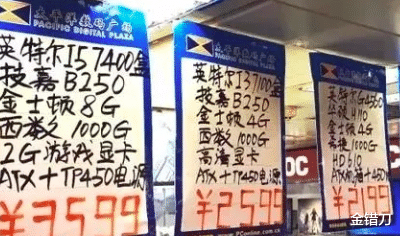 太平洋数码广场
PACIFIC DIGITAL PLAZA
英特尔I57400盒
技嘉B250
金士顿8G
西数1000G
2G游戏显卡
ATX+TP450电源
¥3599
太平洋数码广场
PACIFIC DIGITAL PLAZA
英特尔I37100盒
技嘉B250
金士顿4G
西数1000G
高清显卡
ATX+TP450电源
¥2599
太平洋数码广场
PACIFIC DIGITAL PLAZA
英特尔G4560
华硕H110
金士顿4G
希捷1000G
HD610
¥2199
OC
金错刀